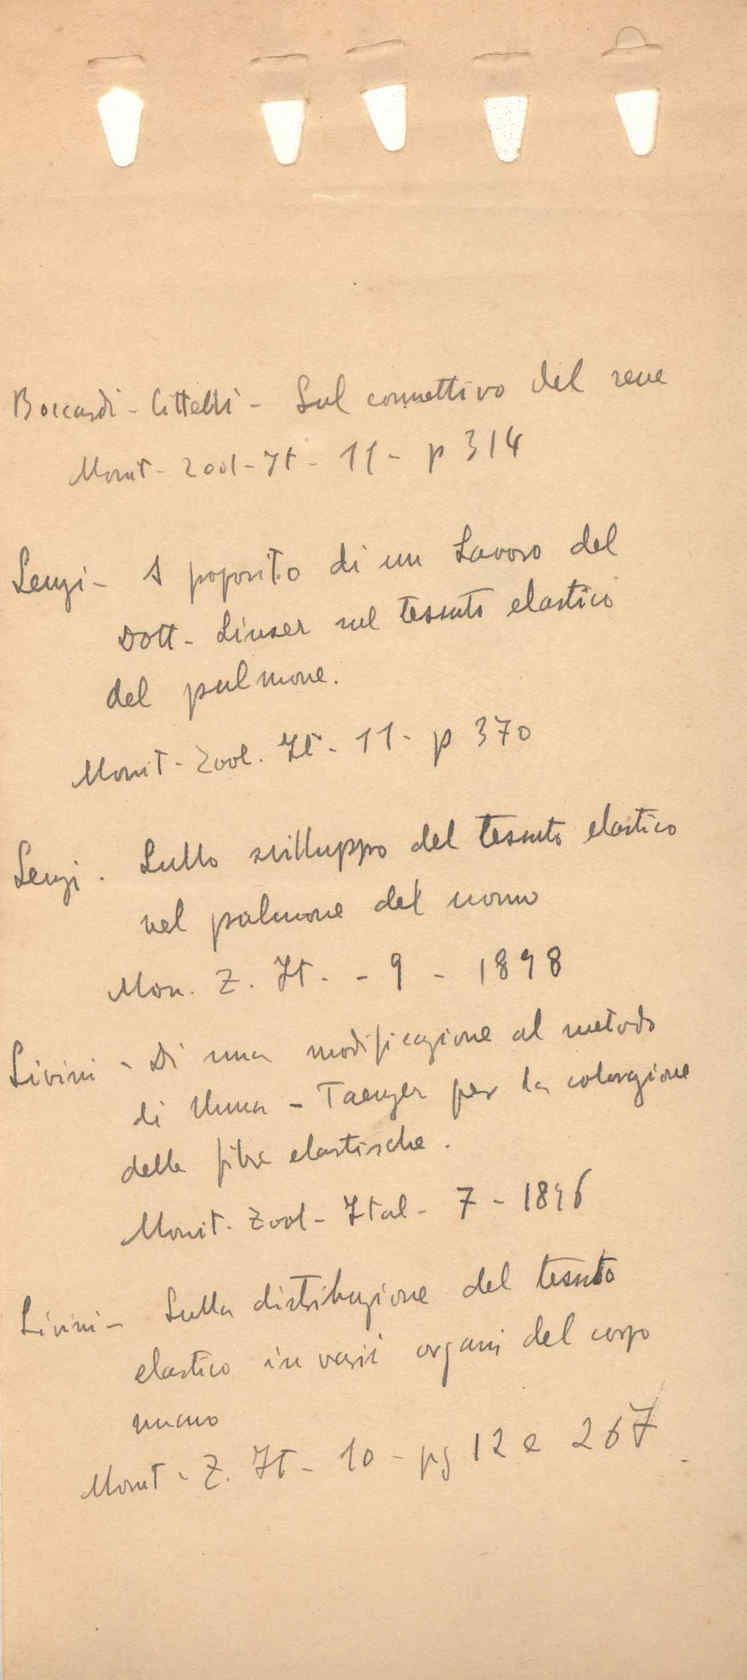 Boccardi - Cittelli - Sul connettivo del rene
Monit - Zool - It - 11 - p 314
Lenzi - A poposito di un Lavoro del
Dott - Linser sul tessuto elastico
del pulmone.
Monit - Zool. It - 11 - p 370
Lenzi. Sullo svilluppo del tessuto elastico
nel pulmone del uomo
Mon. Z. It. - 9 - 1898
Livini - Di una modificazione al metodo
di Unna - Taenzer per la colorazione
delle fibre elastische.
Monit. Zool - Ital - 7 - 1896
Livini - Sulla distribuzione del tesuto
elastico in varii organi del corpo
umano
Monit - Z. It - 10 - pg 12 e 267